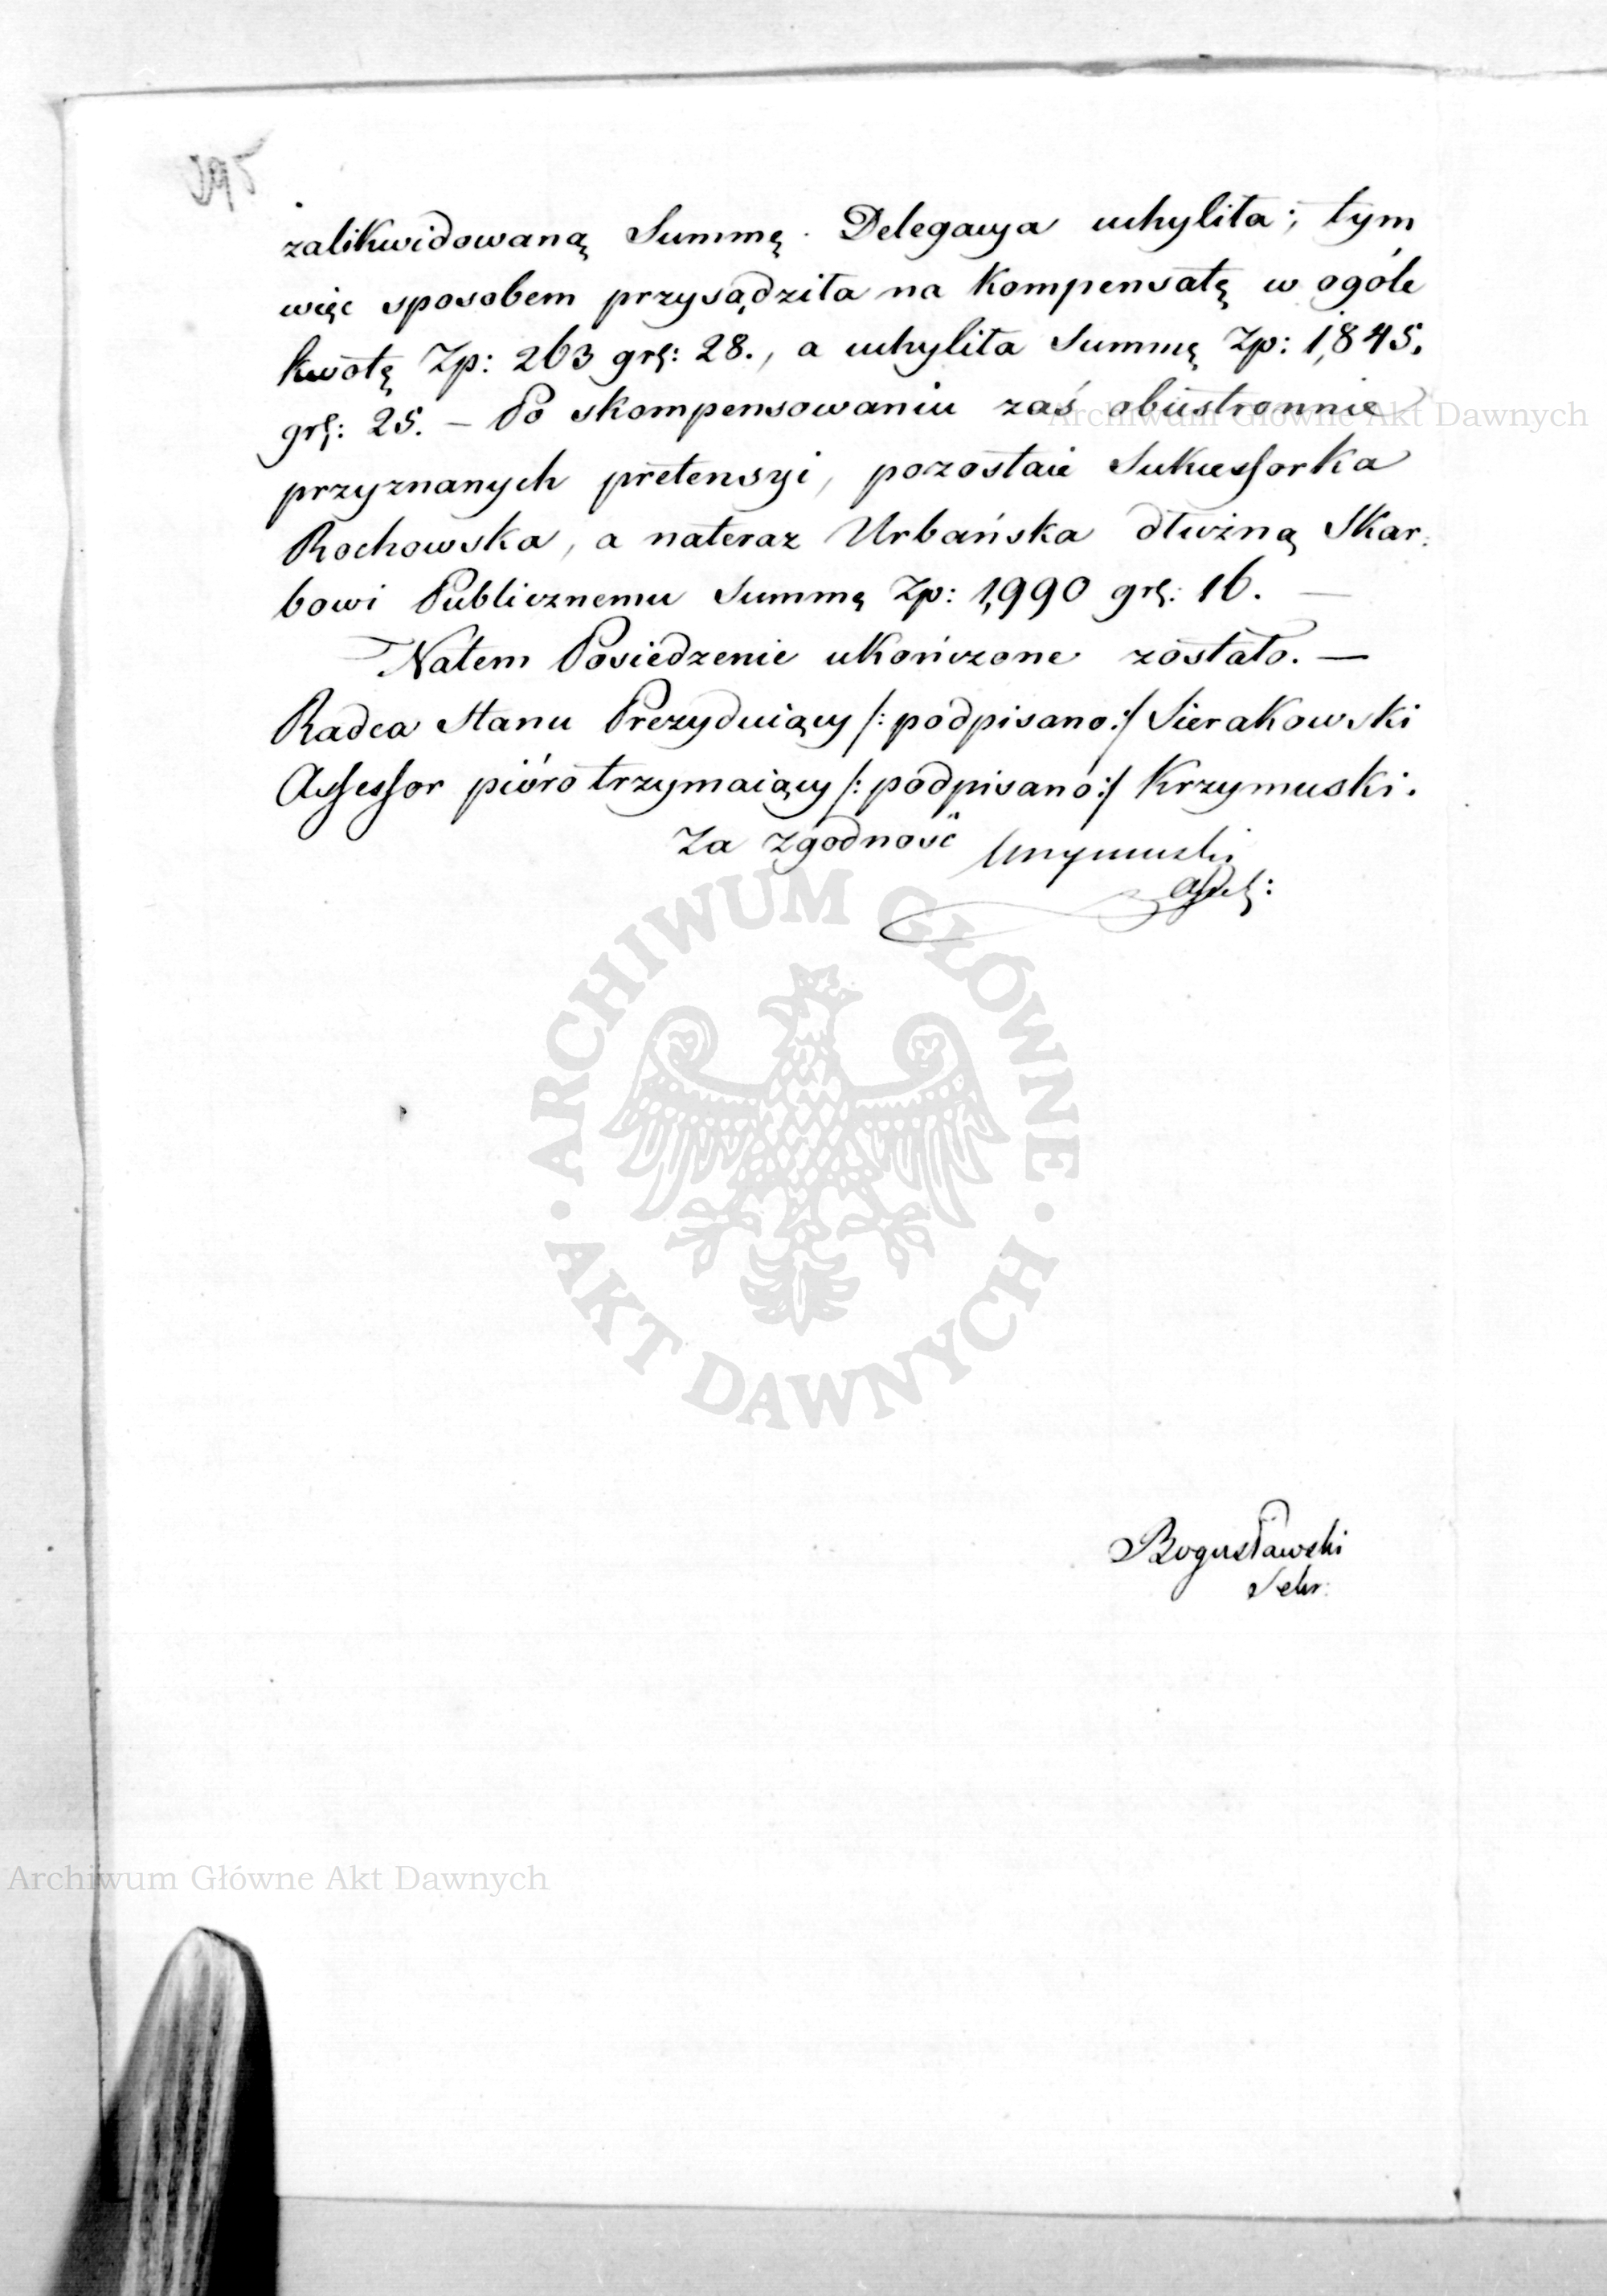 395
zalikwidowaną Summę. Delegacya uchyliła; tym
więc sposobem przysądziła na kompensatę w ogóle
kwotę Zp: 263 grſ: 28., a uchyliła Summę Zp: 1,845.
grſ: 25. — Po skompensowaniu zaś obustronnie
Archiwum Główne Akt Dawnych
przyznanych pretensyi, pozostaie Sukcesſorka
Rochowska, a nateraz Urbańska dłużną Skar:
bowi Publicznemu Summę Zp: 1,990 grſ: 16. —
Natem Posiedzenie ukończone zostało. —
Radca Stanu Prezyduiący /: podpisano :/ Sierakowski
Aſseſsor pióro trzymaiący /: podpisano :/ Krzymuski.
Za zgodność Krzymuski
Aſseſ:
ARCHIWUM GŁÓWNE
· AKT DAWNYCH ·
Bogusławski
Sekr:
Archiwum Główne Akt Dawnych